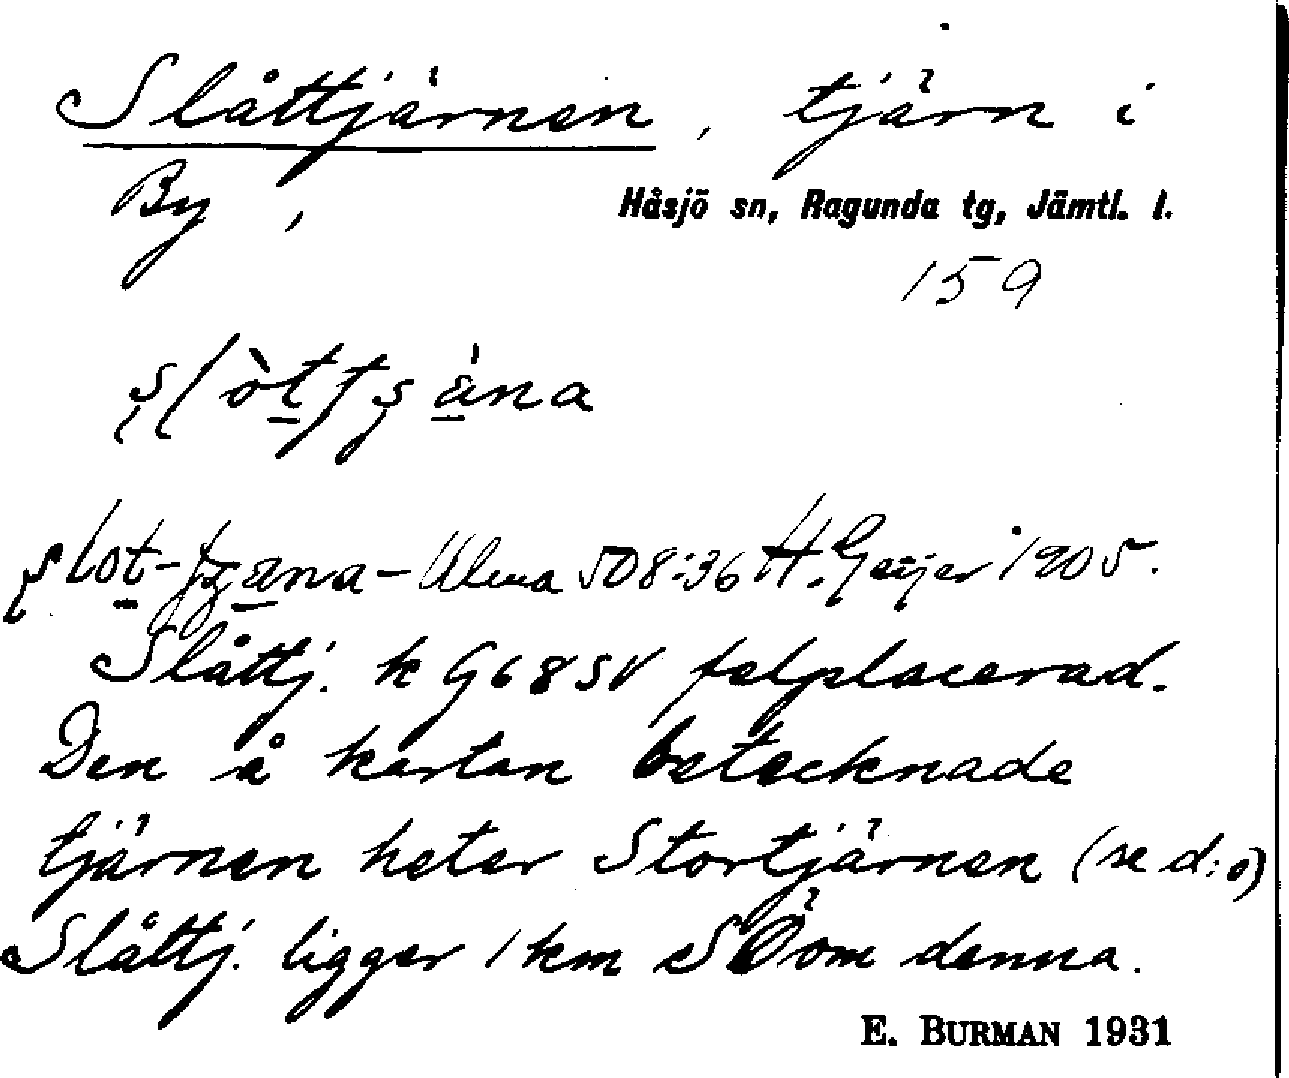 Slåttjärnen, tjärn i
By,
Håsjö sn, Ragunda tg, Jämtl. l.
159
Ulma 508:36 H. Geijer 1905.
Slåttj. k G68SV felplacerad.
Den å kartan betecknade
tjärnen heter Stortjärnen (se d:o)
Slåttj. ligger 1 km SÖ om denna.
E. BURMAN 1931